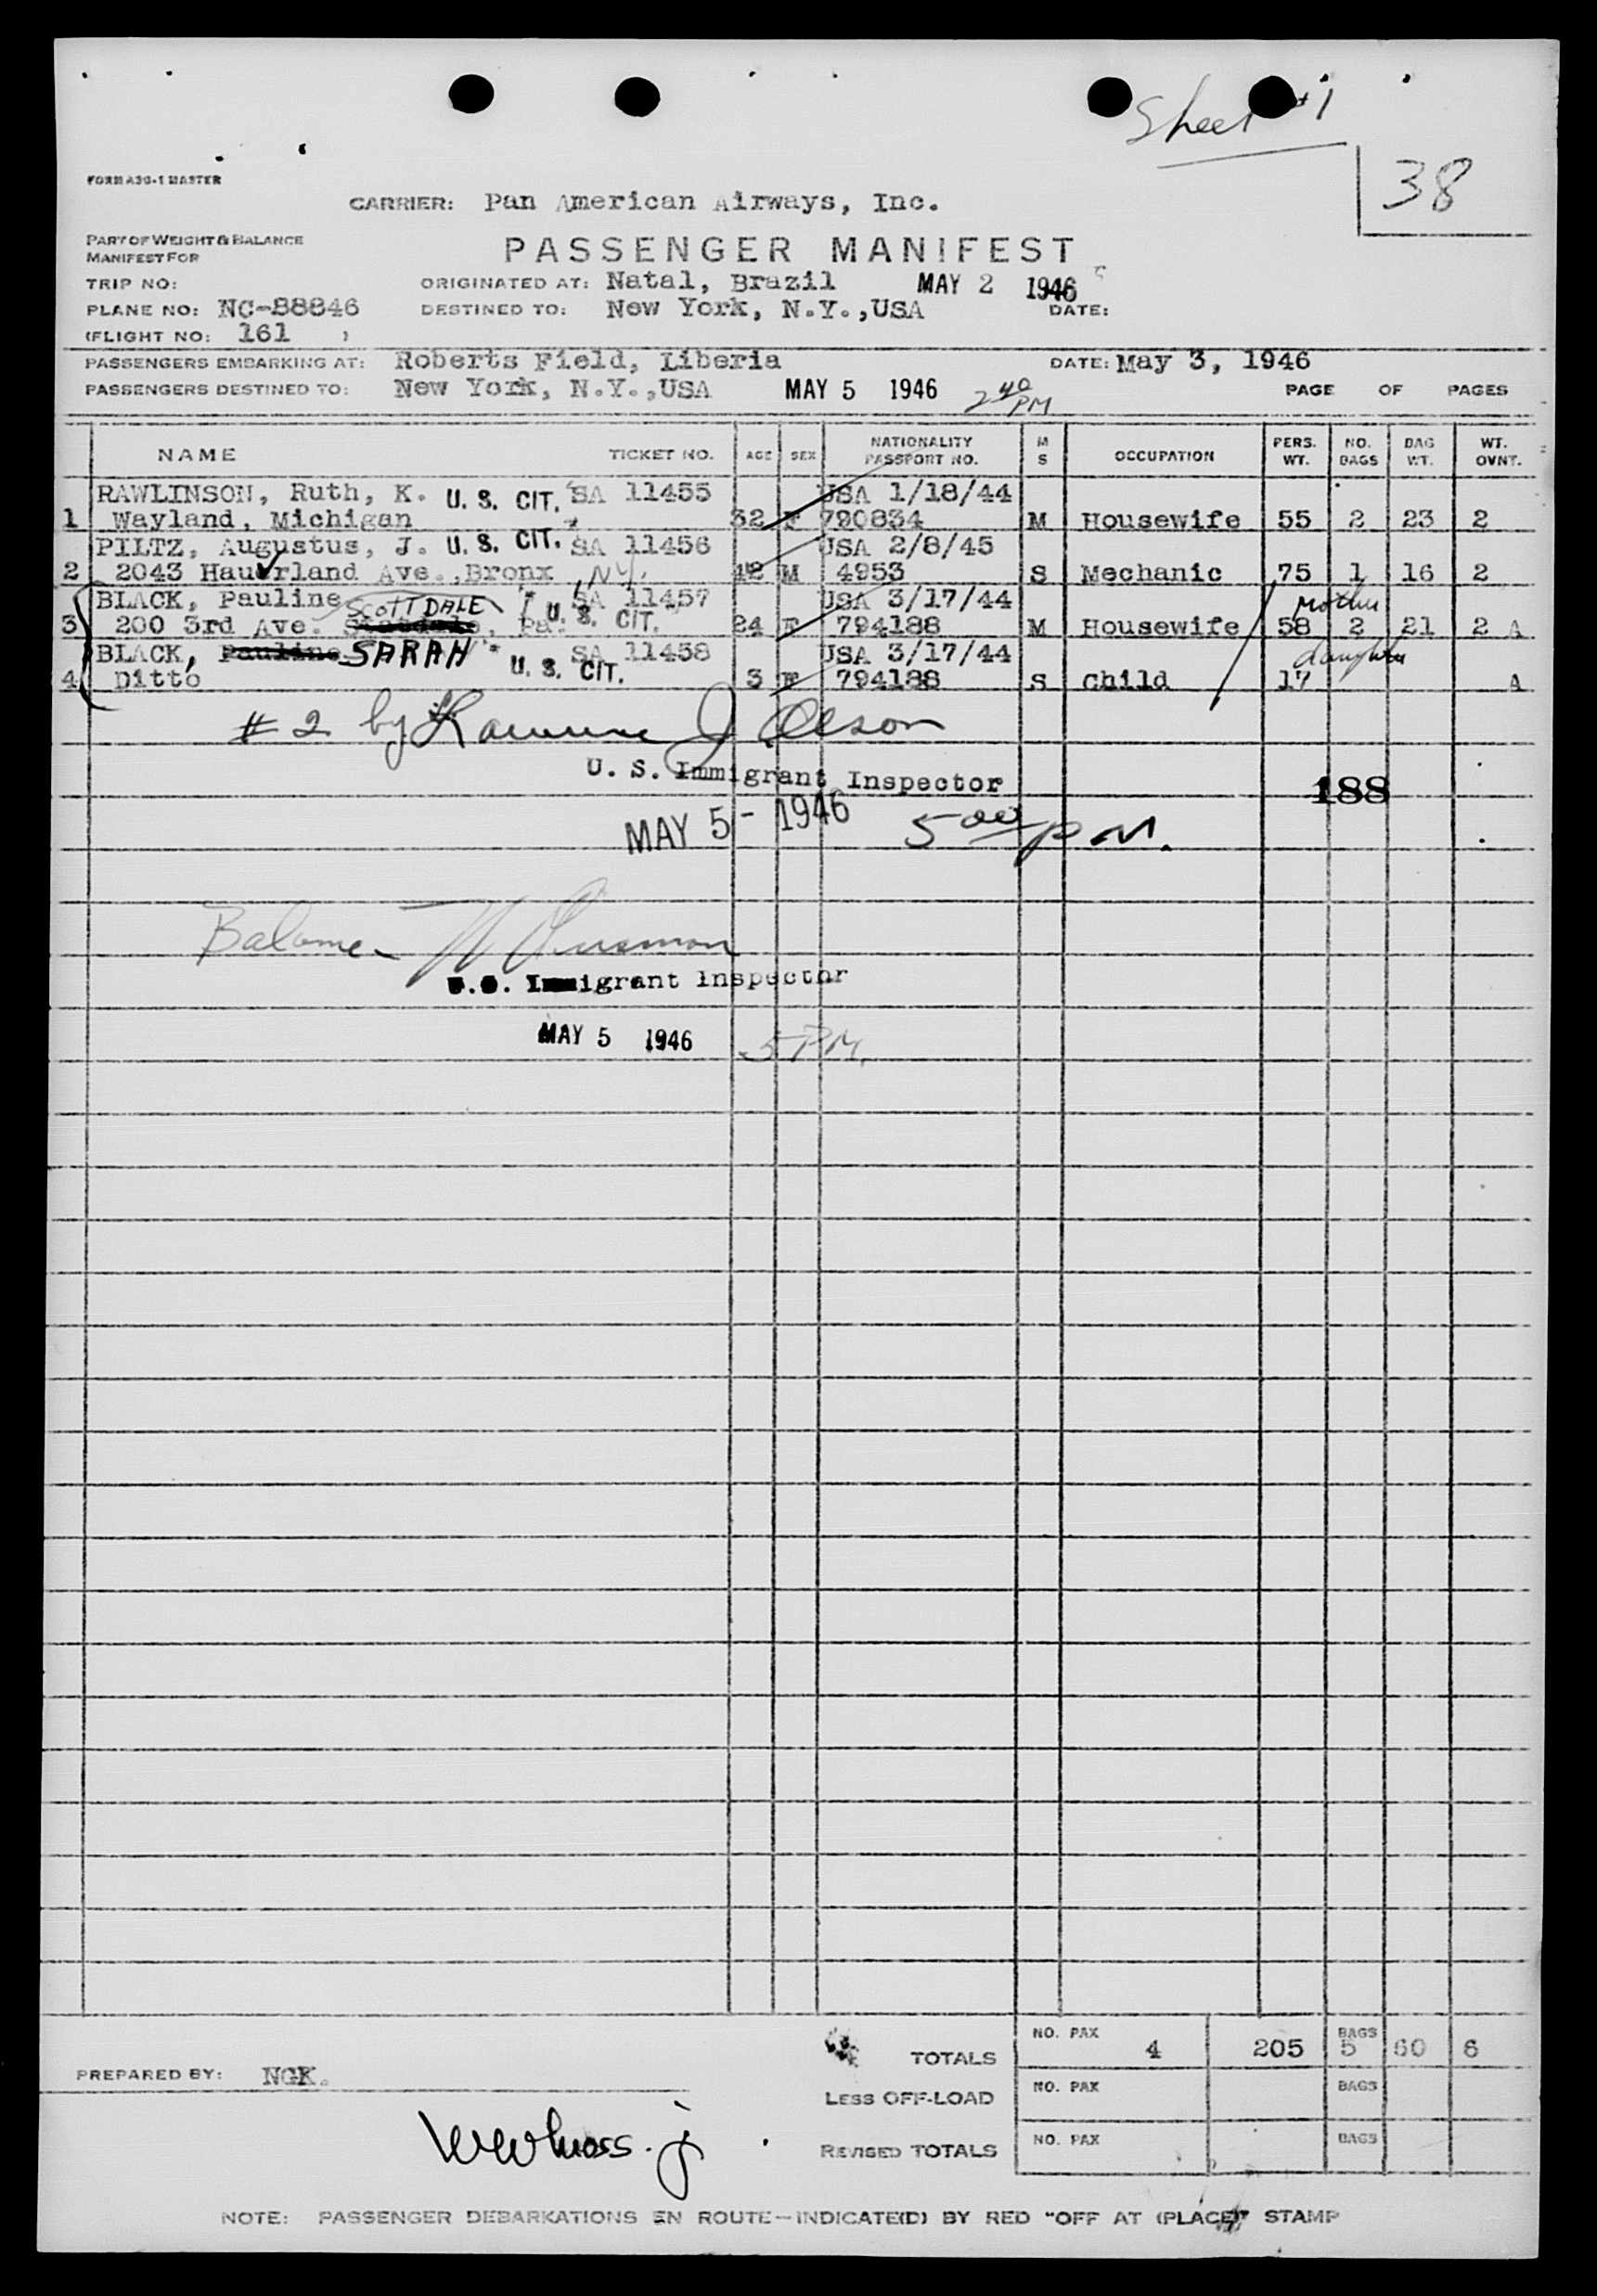 Sheet #1
38
FORM A30-1 MASTER
CARRIER: Pan American Airways, Inc.
PART OF WEIGHT & BALANCE
MANIFEST FOR
PASSENGER MANIFEST
TRIP NO: ORIGINATED AT: Natal, Brazil MAY 2 1946
PLANE NO: NC-88846 DESTINED TO: New York, N.Y.,USA DATE:
(FLIGHT NO: 161 )
PASSENGERS EMBARKING AT: Roberts Field, Liberia DATE: May 3, 1946
PASSENGERS DESTINED TO: New York, N.Y.,USA MAY 5 1946 2 40 PM PAGE OF PAGES
NAME TICKET NO. AGE SEX NATIONALITY PASSPORT NO. M S OCCUPATION PERS. WT. NO. BAGS BAG WT. WT. OVNT.
RAWLINSON, Ruth, K. U. S. CIT. SA 11455 USA 1/18/44
1 Wayland, Michigan 32 F 790834 M Housewife 55 2 23 2
PILTZ, Augustus, J. U. S. CIT. SA 11456 USA 2/8/45
2 2043 Haverland Ave., Bronx, N.Y. 42 M 4953 S Mechanic 75 1 16 2
BLACK, Pauline SCOTTDALE SA 11457 USA 3/17/44 Mother
3 200 3rd Ave. , Pa. U. S. CIT. 24 F 794188 M Housewife 58 2 21 2 A
BLACK, Pauline SARAH SA 11458 USA 3/17/44 daughter
4 Ditto U. S. CIT. 3 F 794188 S Child 17 A
# 2 by J Olson
U. S. Immigrant Inspector
188
MAY 5 - 1946 5 00 P M.
Balance
U.S. Immigrant Inspector
MAY 5 1946 5 PM.
TOTALS NO. PAX 4 205 BAGS 5 60 6
PREPARED BY: NGK.
LESS OFF-LOAD NO. PAX BAGS
REVISED TOTALS NO. PAX BAGS
NOTE: PASSENGER DEBARKATIONS EN ROUTE—INDICATE(D) BY RED "OFF AT (PLACE)" STAMP